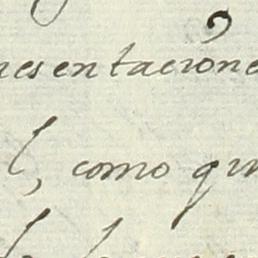 resentacione
l, como qu